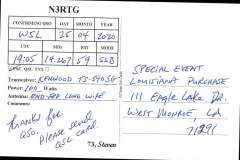 N3RTG
CONFIRMING QSO DAY MONTH YEAR
W5L 25 04 2020
UTC MHz RST MODE
19:05 14.267 59 SSB
Transceiver: KENWOOD TS-590SG
Power: 100 Watts
Antenna: END-FED LONG WIRE
Thanks for
QSO.
Please send
QSL card.
73,
SPECIAL EVENT
LOUISIANA PURCHASE
111 Eagle Lake Dr.
WEST MONROE, LA
71291